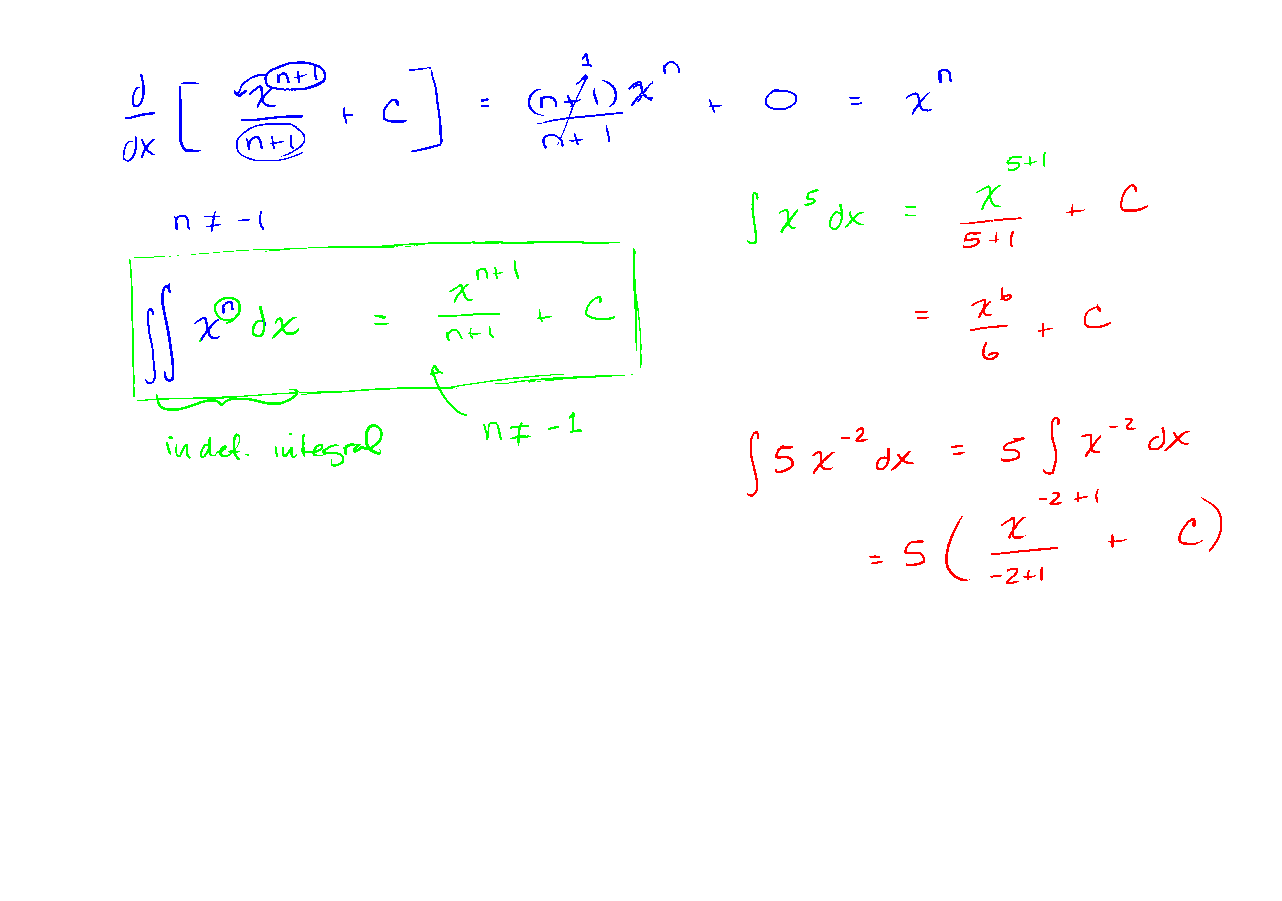 d/dx [ x^(n+1)/(n+1) + C ] = (n+1)x^n/(n+1) 1 + 0 = x^n
n ≠ -1
∫∫ x^n dx = x^(n+1)/(n+1) + C
indef. integral
n ≠ -1
∫ x^5 dx = x^(5+1)/(5+1) + C
= x^6/6 + C
∫ 5 x^(-2) dx = 5 ∫ x^(-2) dx
= 5 ( x^(-2+1)/(-2+1) + C )